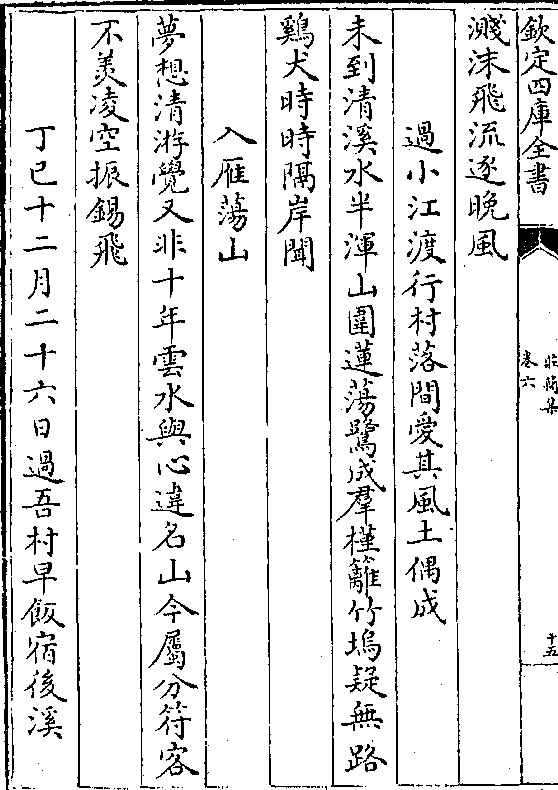 欽定四庫全書
北磵集
卷六
十五
濺沫飛流逐晚風
過小江渡行村落間愛其風土偶成
未到清溪水半渾山圍蓮蕩鷺成羣槿籬竹塢疑無路
鷄犬時時隔岸聞
入雁蕩山
夢想清游覺又非十年雲水與心違名山今屬分符客
不羨凌空振錫飛
丁巳十二月二十六日過吾村早飯宿後溪